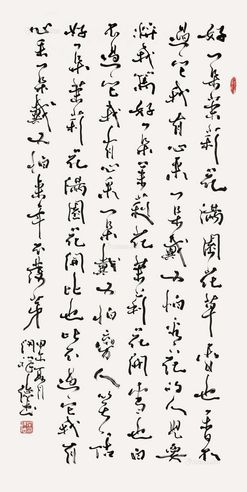 好一朵茉莉花滿園花草香也香不
過它我有心采一朵戴又怕看花的人兒要
將我罵好一朵茉莉花茉莉花開雪也白
不過它我有心采一朵戴又怕旁人笑話
好一朵茉莉花滿園花開比也比不過它我有
心采一朵戴又怕來年不發芽